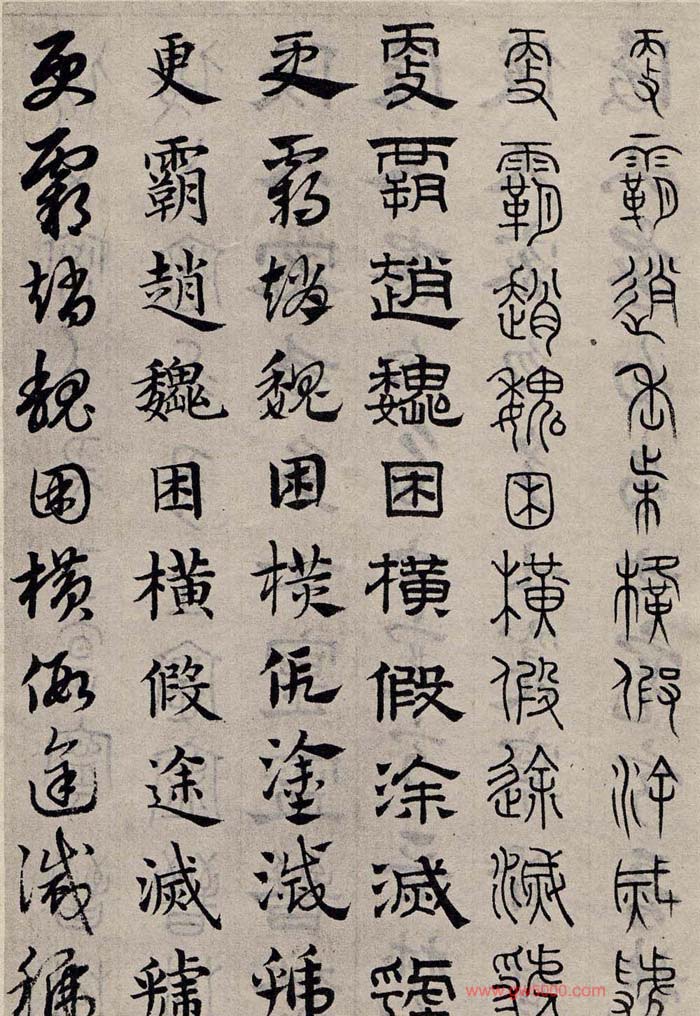 更霸趙魏困橫假涂滅虢
更霸趙魏困橫假途滅虢
更霸趙魏困橫假涂滅虢
更霸趙魏困橫假塗滅虢
更霸趙魏困橫假途滅虢
更霸趙魏困橫假途滅虢